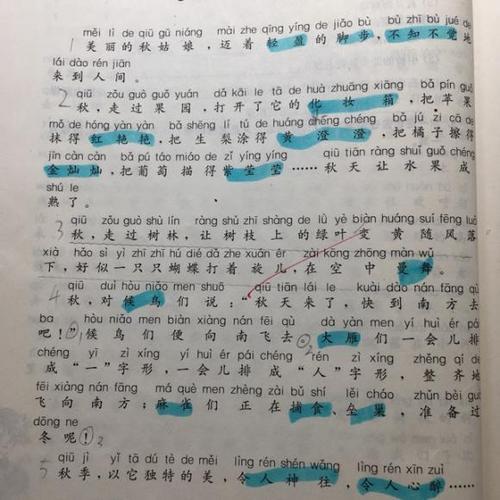 měi lì de qiū gū niáng mài zhe qīng yíng de jiǎo bù bù zhī bù jué de
1 美丽的秋姑娘，迈着轻盈的脚步，不知不觉地
lái dào rén jiān
来到人间。
qiū zǒu guò guǒ yuán dǎ kāi le tā de huà zhuāng xiāng bǎ pín guǒ
2 秋，走过果园，打开了它的化妆箱，把苹果
mǒ de hóng yàn yàn bǎ shēng lí tú de huáng chéng chéng bǎ jú zi cā de
抹得红艳艳，把生梨涂得黄澄澄，把橘子擦得
jīn càn càn bǎ pú táo miáo de zǐ yíng yíng qiū tiān ràng shuǐ guǒ chéng
金灿灿，把葡萄描得紫莹莹……秋天让水果成
shú le
熟了。
qiū zǒu guò shù lín ràng shù zhī shàng de lǜ yè biàn huáng suí fēng luò
3 秋，走过树林，让树枝上的绿叶变黄随风落
xià hǎo sì yì zhī zhī hú dié dǎ zhe xuán ér zài kōng zhōng màn wǔ
下，好似一只只蝴蝶打着旋儿，在空中曼舞。
qiū duì hòu niǎo men shuō qiū tiān lái le kuài dào nán fāng qù
4 秋，对候鸟们说：“秋天来了，快到南方去
ba hòu niǎo men biàn xiàng nán fēi qù dà yàn men yí huì ér pái
吧！”①候鸟们便向南飞去。②大雁们一会儿排
chéng yī zì xíng yí huì ér pái chéng rén zì xíng zhěng qí de
成“一”字形，一会儿排成“人”字形，整齐地
fēi xiàng nán fāng má què men zhèng zài bǔ shí lěi cháo zhǔn bèi guò
飞向南方；麻雀们正在捕食、垒巢，准备过
dōng ne
冬呢！2
qiū jì yǐ tā dú tè de měi lìng rén shén wǎng lìng rén xīn zuì
5 秋季，以它独特的美，令人神往，令人心醉……